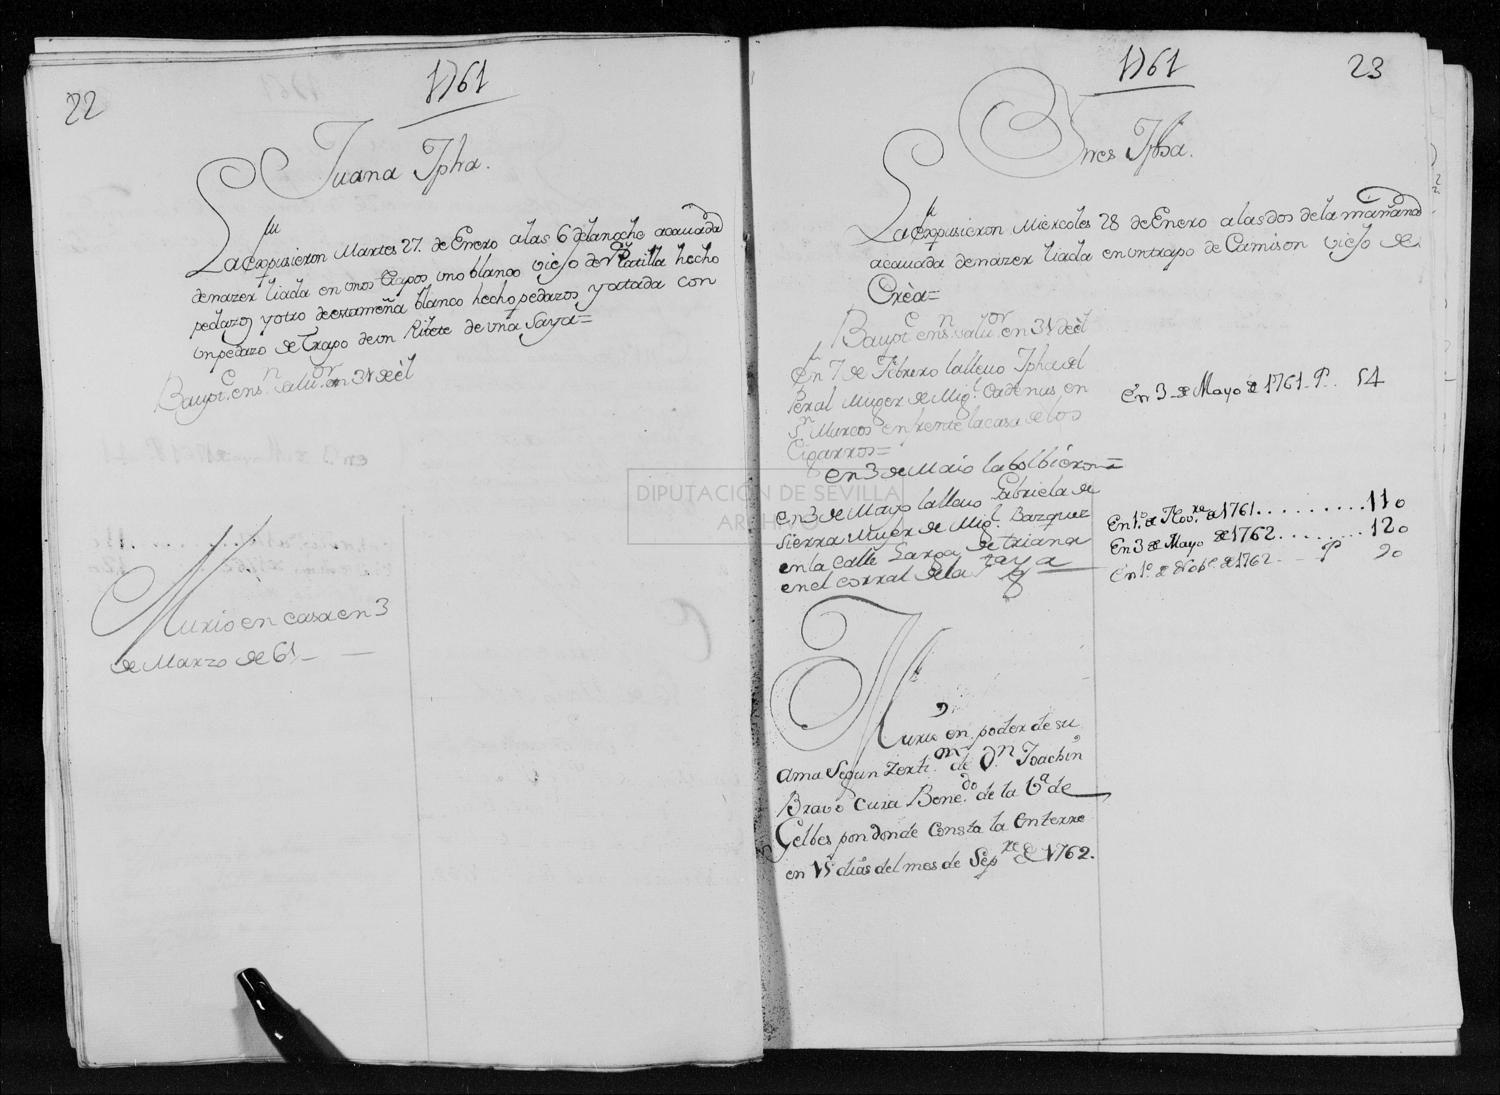 22
1761
Juana Jpha.
La expusieron Martes 27. de Enero a las 6 de la noche acavada
de nazer liada en unos trapos uno blanco viejo de Platilla hecho
pedazos y otro de estameña blanco hecho pedazos y atada con
un pedazo de trapo de un Ribete de una Saya=
Bapt. en S.n Salu.or en 31 de él
Murio en casa en 3
de Marzo de 61
1761
23
Ynes Jpha.
La expusieron Miercoles 28 de Enero a las dos de la mañana
acavada de nazer liada en un trapo de Camison viejo de
Crèa=
Bapt. en S.n Salu.or en 31 de él
En 7 de Febrero la lleuo Jpha del
Peral Muger de Mig.l Cardenas en
S.n Marcos enfrente la casa de los
Cigarros=
En 3 de Mayo de 1761 P. 54
en 3 de Maio la bolbieron=
DIPUTACIÓN DE SEVILLA
ARCHIVO
en 3 de Mayo la lleuo Gabriela de
Sierra Muger de Mig.l Bazquez
en la calle Larga de triana
en el corral de la
En 1.o de Nov.re de 1761 . . . . . . . . . 110
En 3 de Mayo de 1762 . . . . . . . 120
En 1.o de Nob.e de 1762 P 90
Murio en poder de su
Ama Segun Zerti.on de D.n Joachin
Bravo Cura Bene.do de la V.a de
Gelbes por donde Consta la Enterre
en 15 dias del mes de Sep.re de 1762.